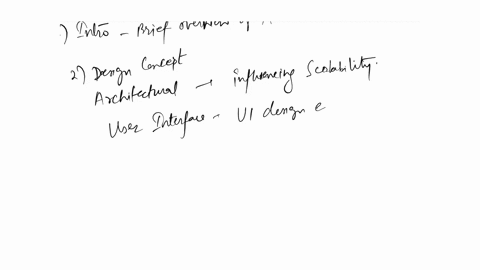 ) Intro - Brief overview of
2) Design Concept
Architectural → influencing Scalability.
User Interface - UI design e